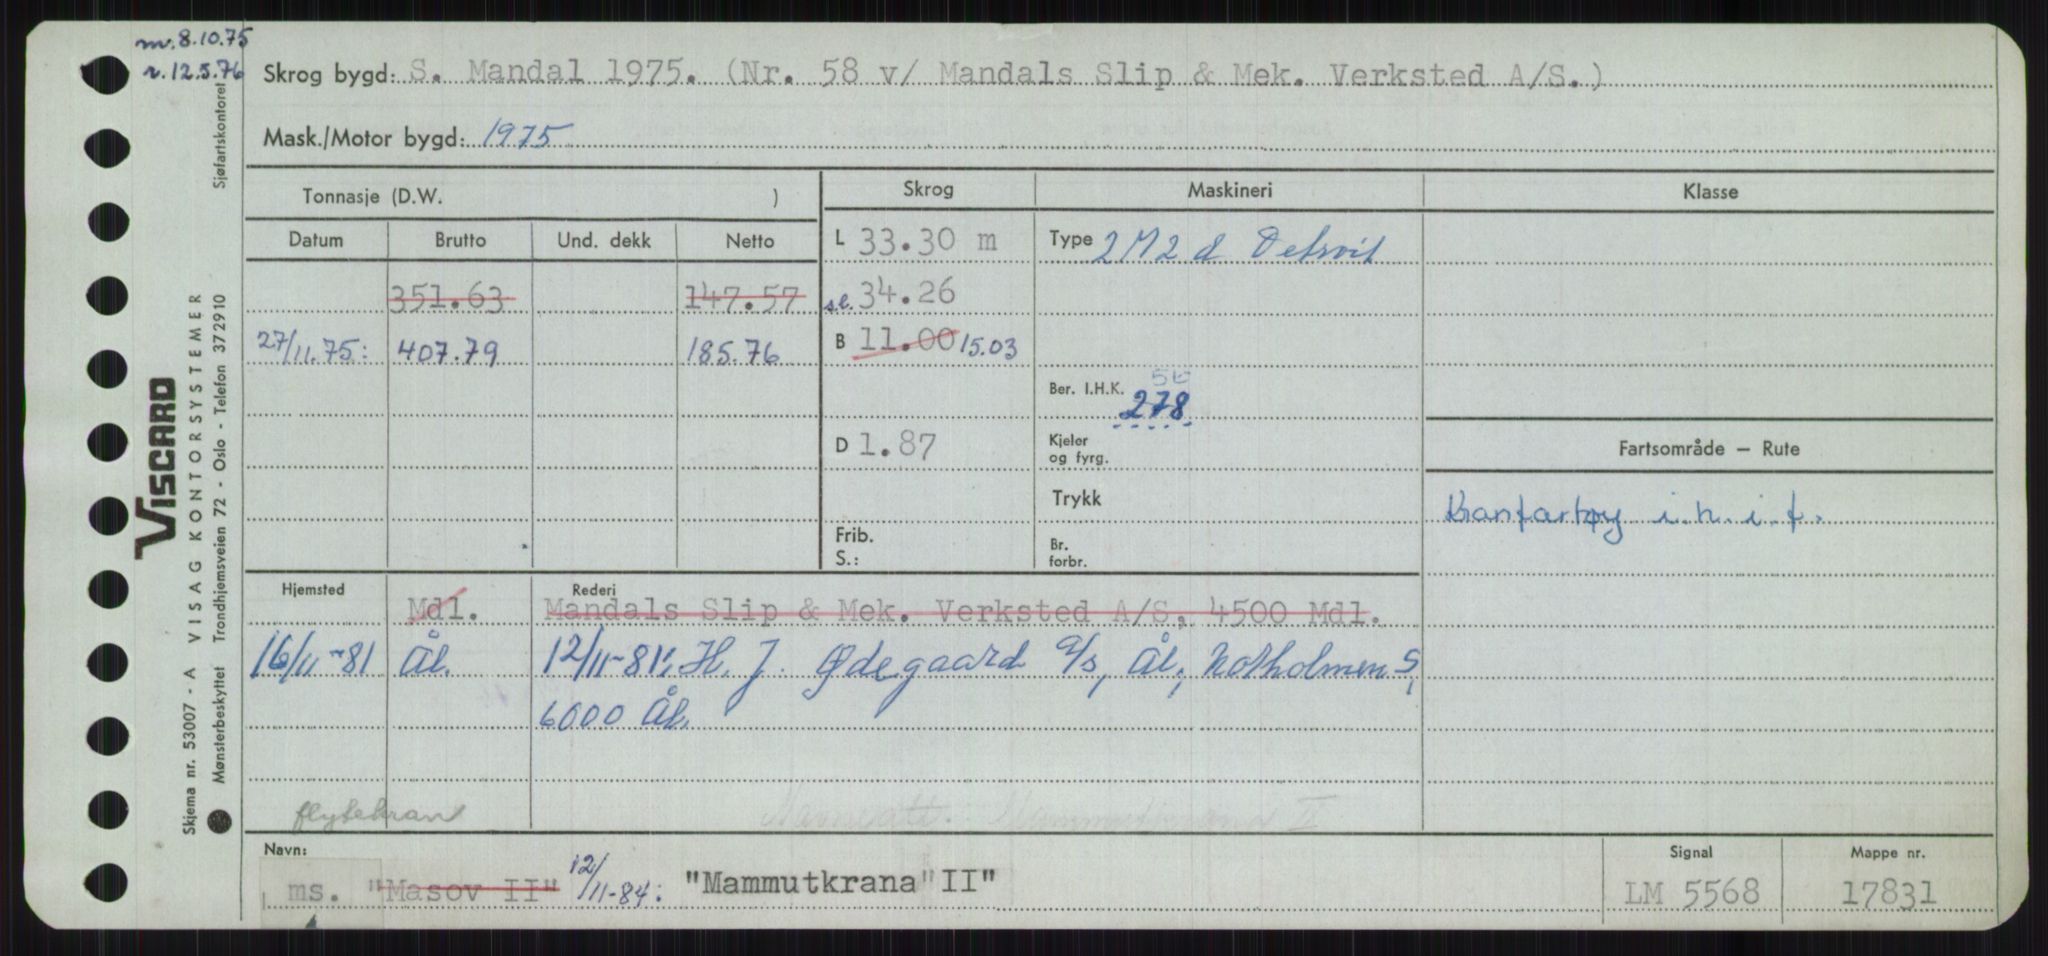 nv. 8.10.75
r. 12.5.76
Skrog bygd: S. Mandal 1975. (Nr. 58 v/ Mandals Slip & Mek. Verksted A/S.)
Mask./Motor bygd: 1975
Tonnasje (D.W. )
Skrog Maskineri Klasse
Datum Brutto Und. dekk Netto
L 33.30 m Type 2 M 2 d Detroit
351.63 147.57 s.l. 34.26
27/11.75: 407.79 185.76 B 11.00 15.03
Ber. I.H.K. 278
D 1.87 Kjeler
og fyrg.
Fartsområde — Rute
Trykk
Kranfartøy i.n.i.f.
Frib.
S.:
Br.
forbr.
Hjemsted Mdl. Rederi Mandals Slip & Mek. Verksted A/S, 4500 Mdl.
16/11-81 Ål. 12/11-81: H. J. Ødegaard a/s, Ål, Notholmen 5,
6000 Ål.
flytekran Mammutkrana II
Navn:
ms. "Masov II" 12/11-84: "Mammutkrana" II"
Signal
LM 5568
Mappe nr.
17831
VISCARD
Skjema nr. 53007 - A VISAG KONTORSYSTEMER
Mønsterbeskyttet Trondhjemsveien 72 - Oslo - Telefon 372910
Sjøfartskontoret